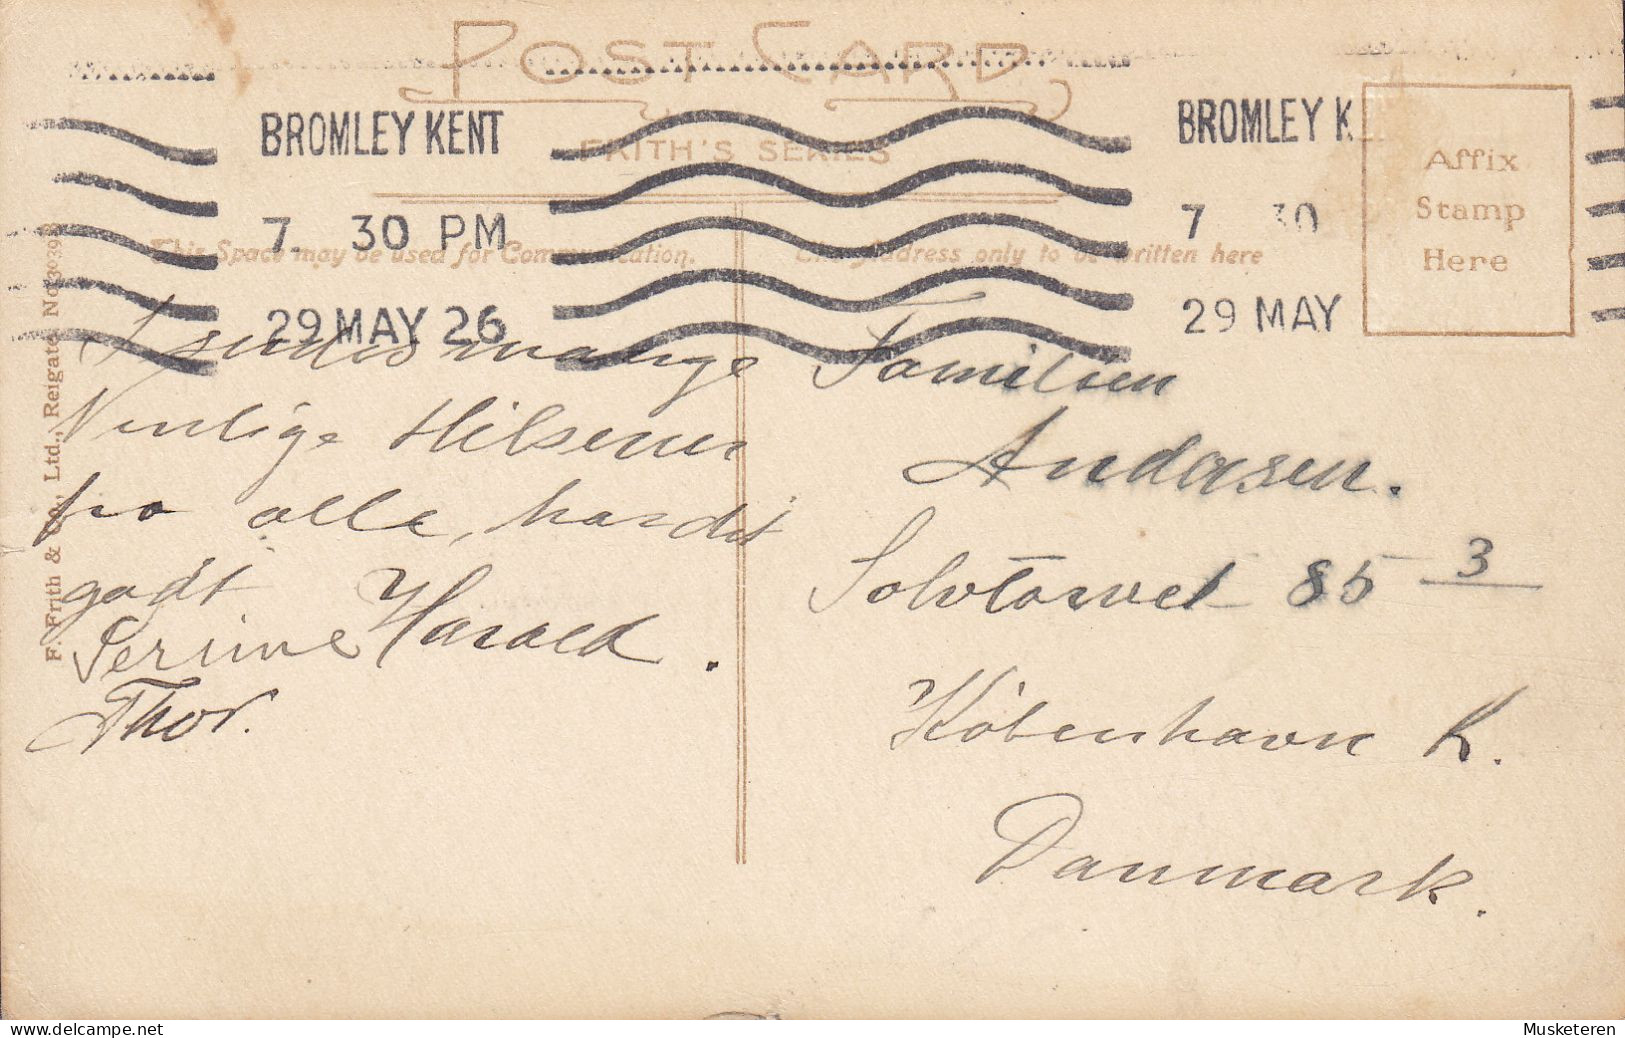 POST CARD
FRITH'S SERIES
BROMLEY KENT
7 30 PM
29 MAY 26
BROMLEY K
7 30
29 MAY
Affix
Stamp
Here
This Space may be used for Communication.
The Address only to be written here
F. Frith & Co., Ltd., Reigate. No.
I sendes mange
Venlige Hilsener
fra alle,
godt
Harald.
Thor.
Familien
Andersen.
Solvtorvet 85 3
København K.
Danmark.
Musketeren
www.delcampe.net